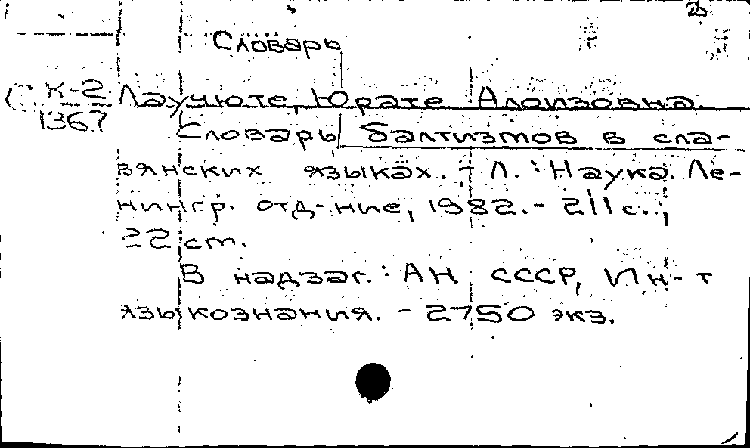 Словарь
К-2 Лаучюте, Юрате Алоизовна.
1367 Словарь балтизмов в сла-
вянских языках. - Л. : Наука. Ле-
нингр. отд-ние, 1982. - 211 с.;
22 см.
В надзаг.: АН СССР, Ин-т
языкознания. - 2750 экз.